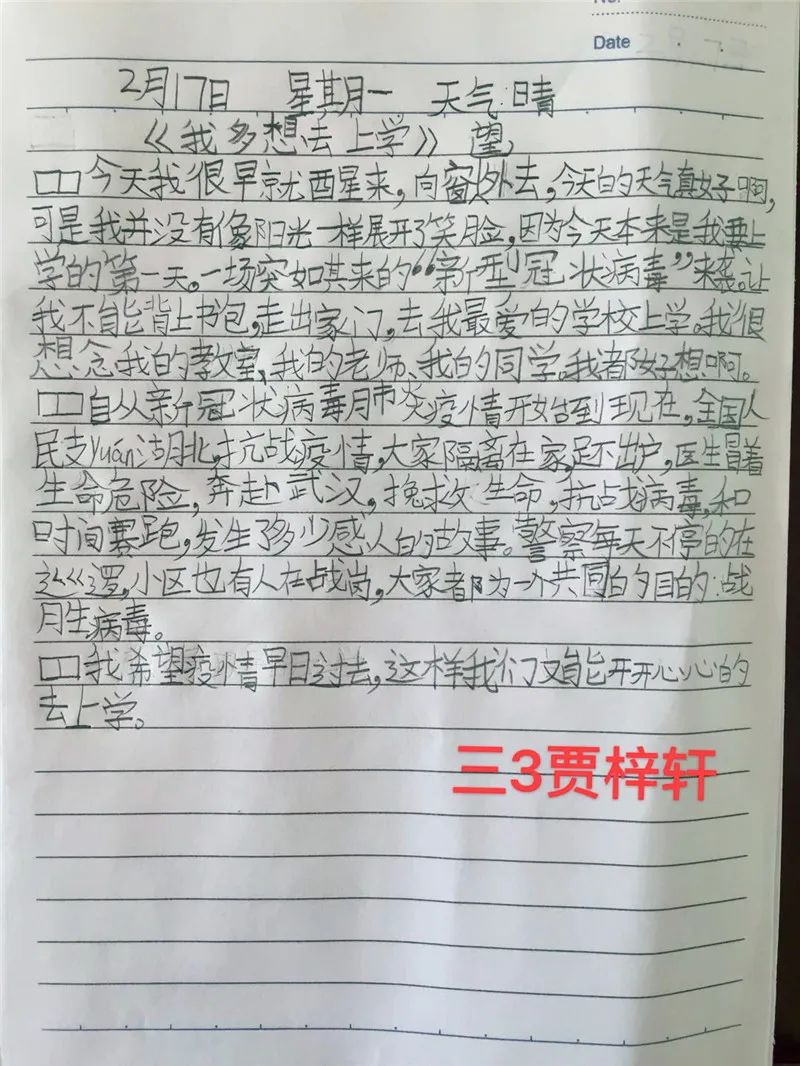 No.
Date
2月17日 星期一 天气:晴
《我多想去上学》 望
今天我很早就醒来,向窗外去,今天的天气真好啊,
可是我并没有像阳光一样展开了笑脸,因为今天本来是我要上
学的第一天。一场突如其来的“新型冠状病毒”来袭。让
我不能背上书包,走出家门,去我最爱的学校上学。我很
想念我的教室、我的老师、我的同学。我都好想啊。
自从新冠状病毒肺炎疫情开始到现在,全国人
民支yuán湖北,抗战疫情,大家隔离在家,足不出户,医生冒着
生命危险,奔赴武汉,挽救生命,抗战病毒,和
时间赛跑,发生了多少感人的故事。警察每天不停的在
巡逻,小区也有人在战岗,大家都为一个共同的目的:战
胜病毒。
我希望疫情早日过去,这样我们才能开开心心的
去上学。
三3贾梓轩